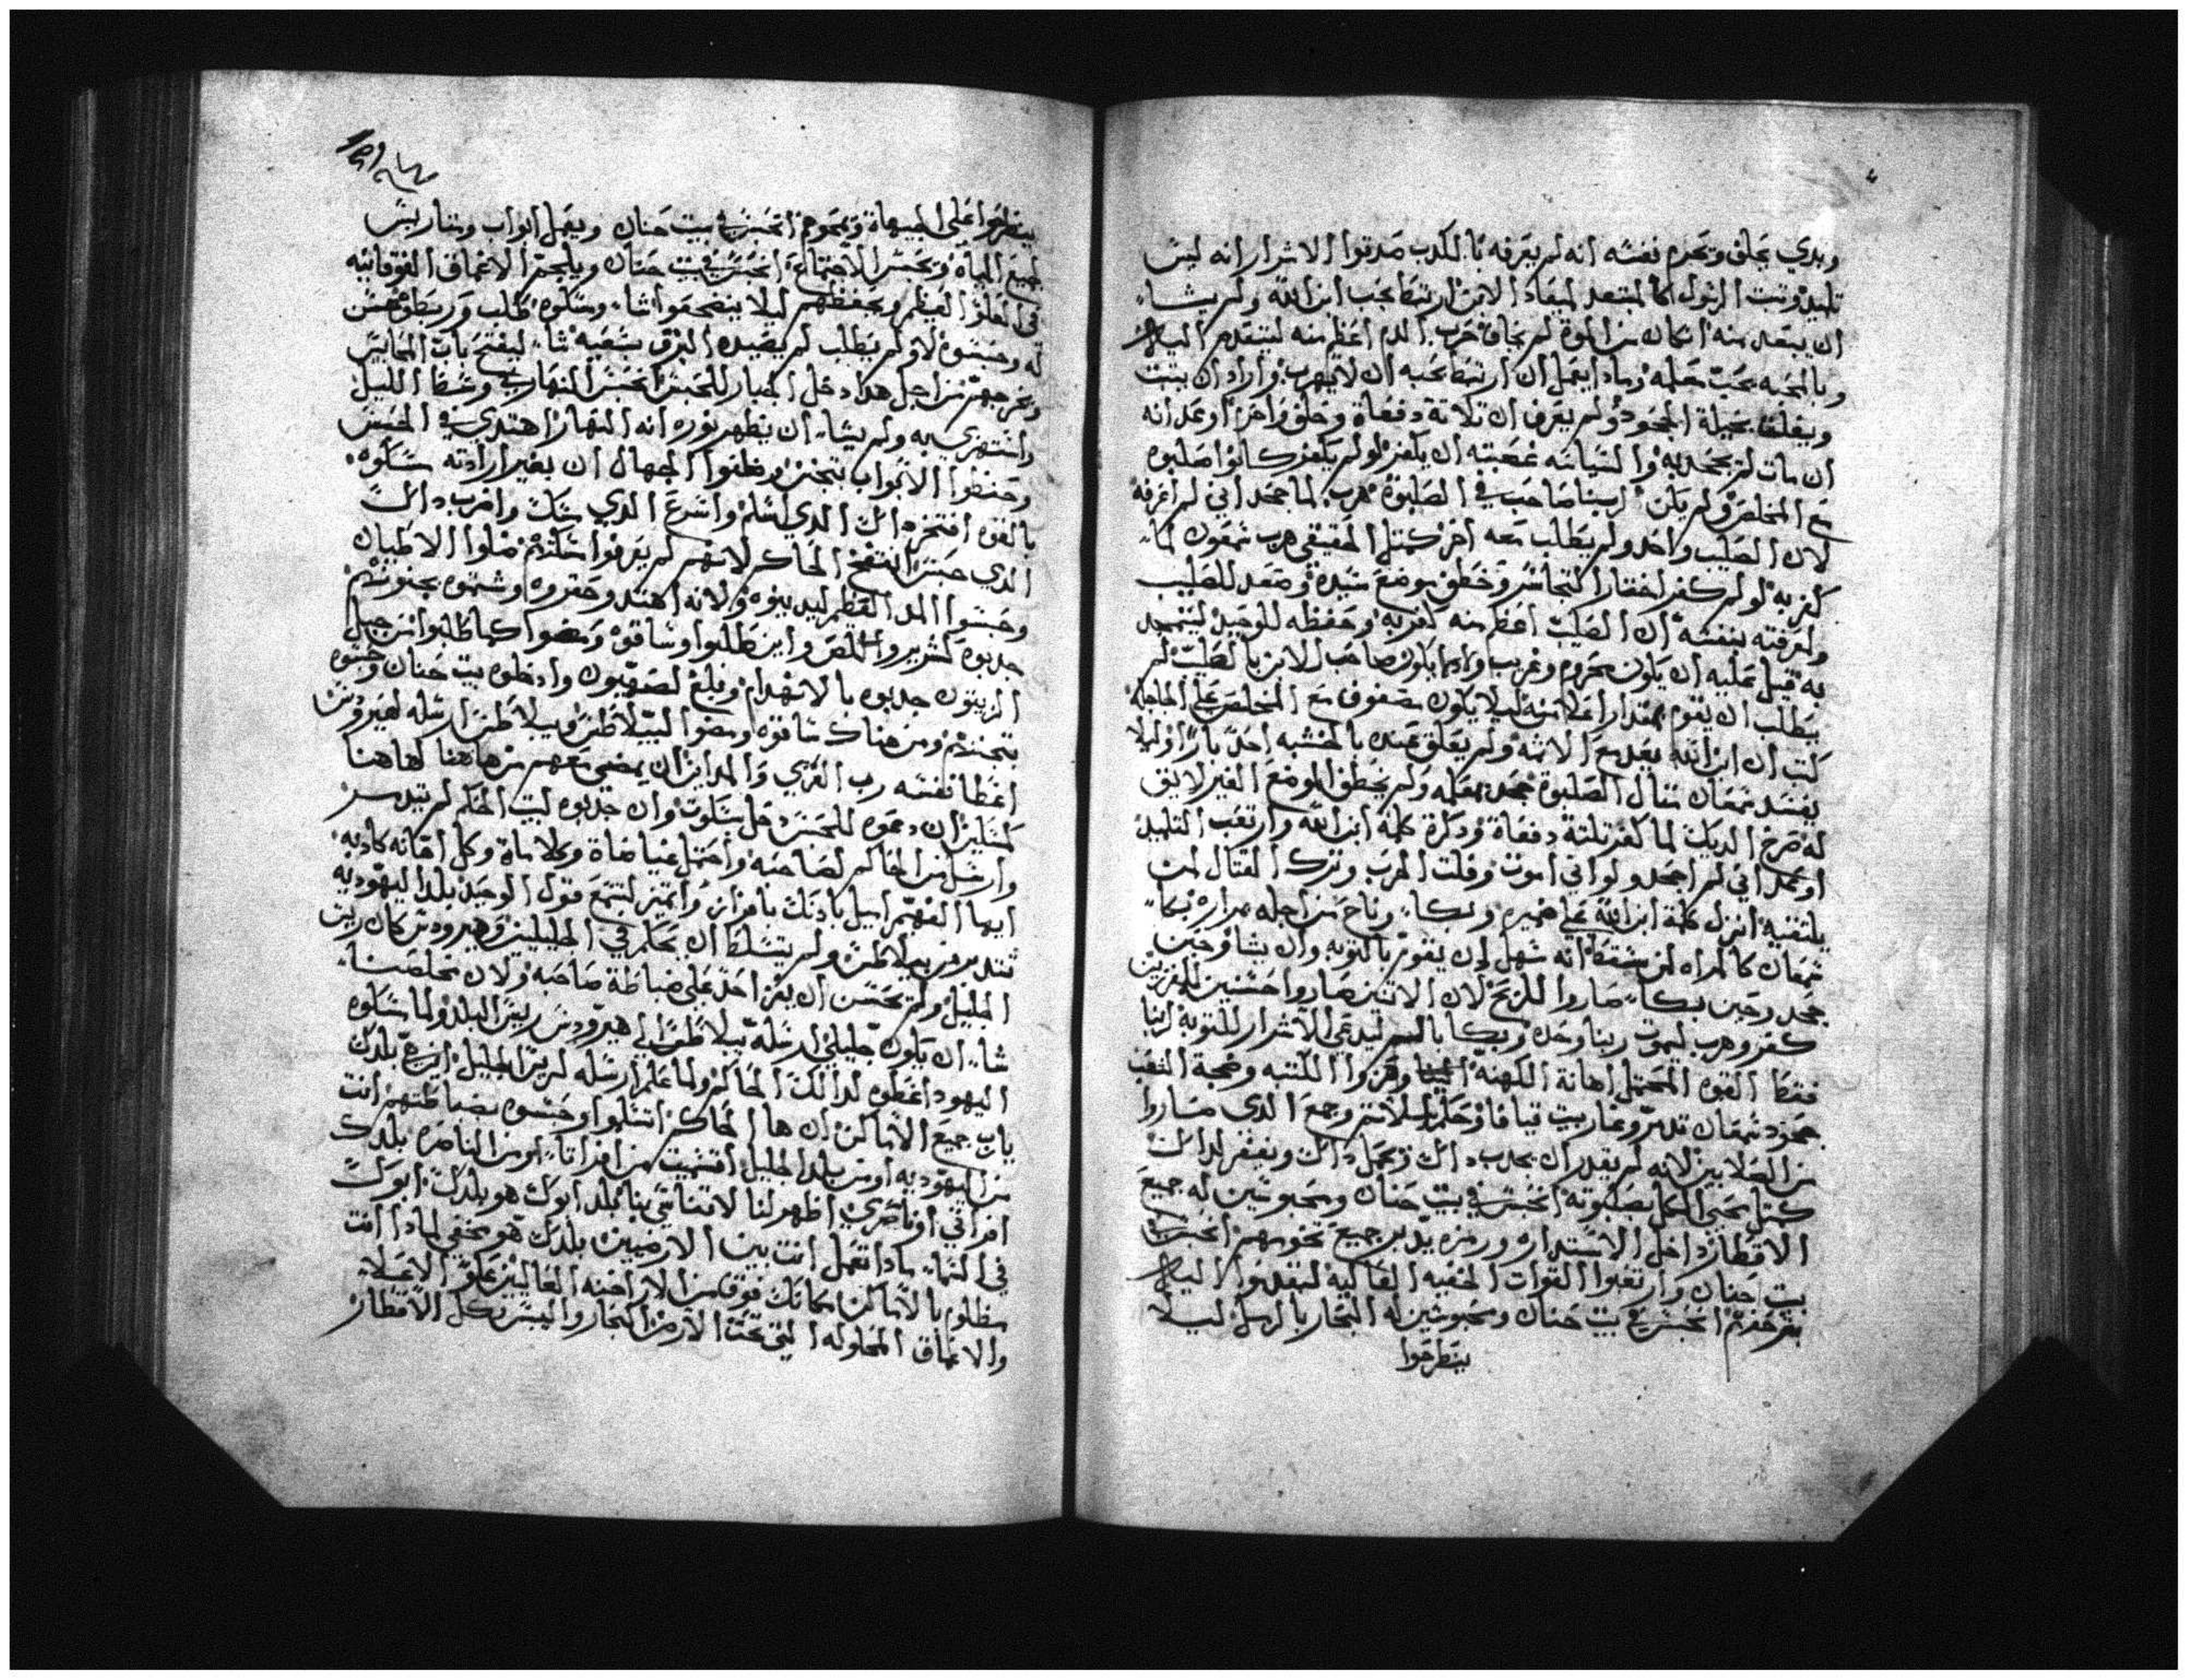 وبدي يحلف ويحرم نفسه انه لم يعرفه بالكدب صدقوا الاشرار انه ليس
تلميد وتبت الرسول كالمبتعد لميعاد الابن ارتبط بحب ابن الله ولم يشاء
ان يبتعد منه ان كان من ابوة لم يخاف حرب الدم اعظم منه ليتقدم اليه
وبالمحبه يحب معلمه وماذا يعمل ان ارتبط بحبه ان لا يهرب واراد ان يتبت
ويغلط بحيلة الجحود ولم يعرف ان تلاتة دفعاة وحلف واخزا اوعد انه
ان مات لم يجحد به والنسيانه غصبته ان يكفر لو لم يكفر كانوا صلبوه
مع المخلص ولم يكن لربنا صاحب في الصلبوة هرب لما جحد اني لم اعرفه
لان الصليب واحد ولم يطلب معه اخر كمتل الحقيقي هرب شمعون لما
كفر به لو لم كفر اختار التجاسر وخطف موضع سيده وصعد للصليب
ولمعرفته بنفسه ان الصليب اعظم منه كفر به وحفظه للوحيد ليتمجد
به قبل عليه ان يكون محروم وغريب ولا يكون صاحب للابن بالصليب لم
يطلب ان يقوم بمقدار اعلا منه ليلا يكون مصفوف مع المخلص على الجلجله
كتب ان ابن الله يعد مع الاتمه ولم يعلق عنده بالخشبه احد بارا وليلا
يفسد شمعان متال الصلبوة جحد معلمه ولم يخطف الموضع الغير لايق
له صرخ الديك لما كفر تلتة دفعاة ودكرة كلمة ابن الله وارتعب التلميد
اوعد اني لم اجحد ولو اني اموت وفلت الحرب وترك القتال لمن
يلتقيه انزل كلمة ابن الله على ضميره وبكاء وناح من اجله مرارة بكاء
شمعان كالمراه لمن سقط انه سهل ان يقوم بالتوبه وان يشا وحين
جحد وحين بكاء صاروا للربح لان الاتنين صاروا حسنين للمفرزين
كفر وهرب ليموت ربنا وحده وبكا بالسر ليدعي الاشرار للتوبة لربنا
فقط القوه المحتمل اهانة الكهنة وهزوا الكتبه وضجة الشعب
جحود شمعان تدبر وغار بيت قيافا وحكم بيلاطس وجمع الدي صاروا
من الصلابين لانه لم يقدر ان يجدب داك ويحمل داك ويغفر لداك
كمتل يحيي الكل بصلبوته انحبس في بيت حنان ومحبوسين له جميع
الاقطار داخل الاستداره ورمزه يدبر جميع نحوبهم انحبس في
بيت حنان وارتعبوا القوات الخفيه العاليه ليتقدموا اليه
بفرحهم انحبس في بيت حنان ومحبوسين له البحار بالرمل ليلا
ينطرحوا
ينطرحوا على الجيهاة وبمجوهم انحبس في بيت حنان ويعمل ابواب ومتاريس
لجميع المياه ويحبس الاجتماع انحبس في بيت حنان ويلجم الاعماق الفوقانيه
في العلو العظيم ويحفظهم ليلا ينضحقوا شاء ومسكوه طلب وربطوه حسن
له وحبسوه لاولم يطلب لم يصيده البرق بسعيه شاء ليفتح باب المحابيس
ويخرجهم من اجل هدا دخل الجبار للحبس انحبس النهار في وسط الليل
واستهزي به ولم يشاء ان يظهر نوره انه النهار اهتدي في الحبس
وحفظوا الابواب بتجبر وظنوا الجهال ان بغير ارادته مسكوه
بالقوه افتخر داك الدي اسلم واسرع الدي مسك واضرب داك
الدي حبس انتفخ الحاكم لانهم لم يعرفوا مسكوهم ملوا الاطيان
وحبسوا المد العظيم ليدينوه ولانه اهتد وحقروه وشتموه بجنونهم
جدبوه كشرير وكلص واين طلبوا وساقوه ومضوا كما طلبوا من جبل
الزيتون جدبوه بالاستهدام وبلغ لصهيون وادخلوه بيت حنان وحبسوه
بتجبرهم ومن هناك ساقوه ومضوا لبيلاطس وبيلاطس ارسله لهيرودس
اعطا نفسه رب القري والمداين ان يمضي معهم من هاهنا لهاهنا
كمتلين ان دعوه للحبس دخل بسكوت وان جدبوه لبيت الحكم لم يتدمر
وارسل من الحاكم لصاحبه واحتمل عياضاة وكلاماة وكل اهانه كاذبه
ايها الفهيم اميل بادنك بافراز واتميز لتسمع قول الوحيد بلد اليهوديه
تتدبر من بيلاطس ولم يتسلط ان يحكم في الجليلين وهيرودس كان ريس
الجليل ولم يحسن ان يفر احد على ضباطة صاحبه ولان مخلصنا
شاء ان يكون جليلي ارسله بيلاطس لي هيرودس ريس البلد ولما مسكوه
اليهود اعطوه لداك الحاكم ولما علم ارسله لريس الجليل ايرع بلدك
ياب جميع الاماكن ان ها الحاكم اتسلموا وحبسوه بضباطتهم انت
من اليهوديه اومن بلد الجليل افتهميت من افراتاء اومن الناصره بلدك
افراتي اوناصري اظهر لنا لافتاتي بنا بلد ابوك هو بلدك ابوك
في السماء ماداتعمل انت بين الارضيين بلدك هو مخفي لمادا انت
مظلوم بالاماكن مكانك فوق من الاراضنه العاليين علو الاعلاء
والاعماق المحاوله التي تحت الارض البحار واليبس بكل الاقطار